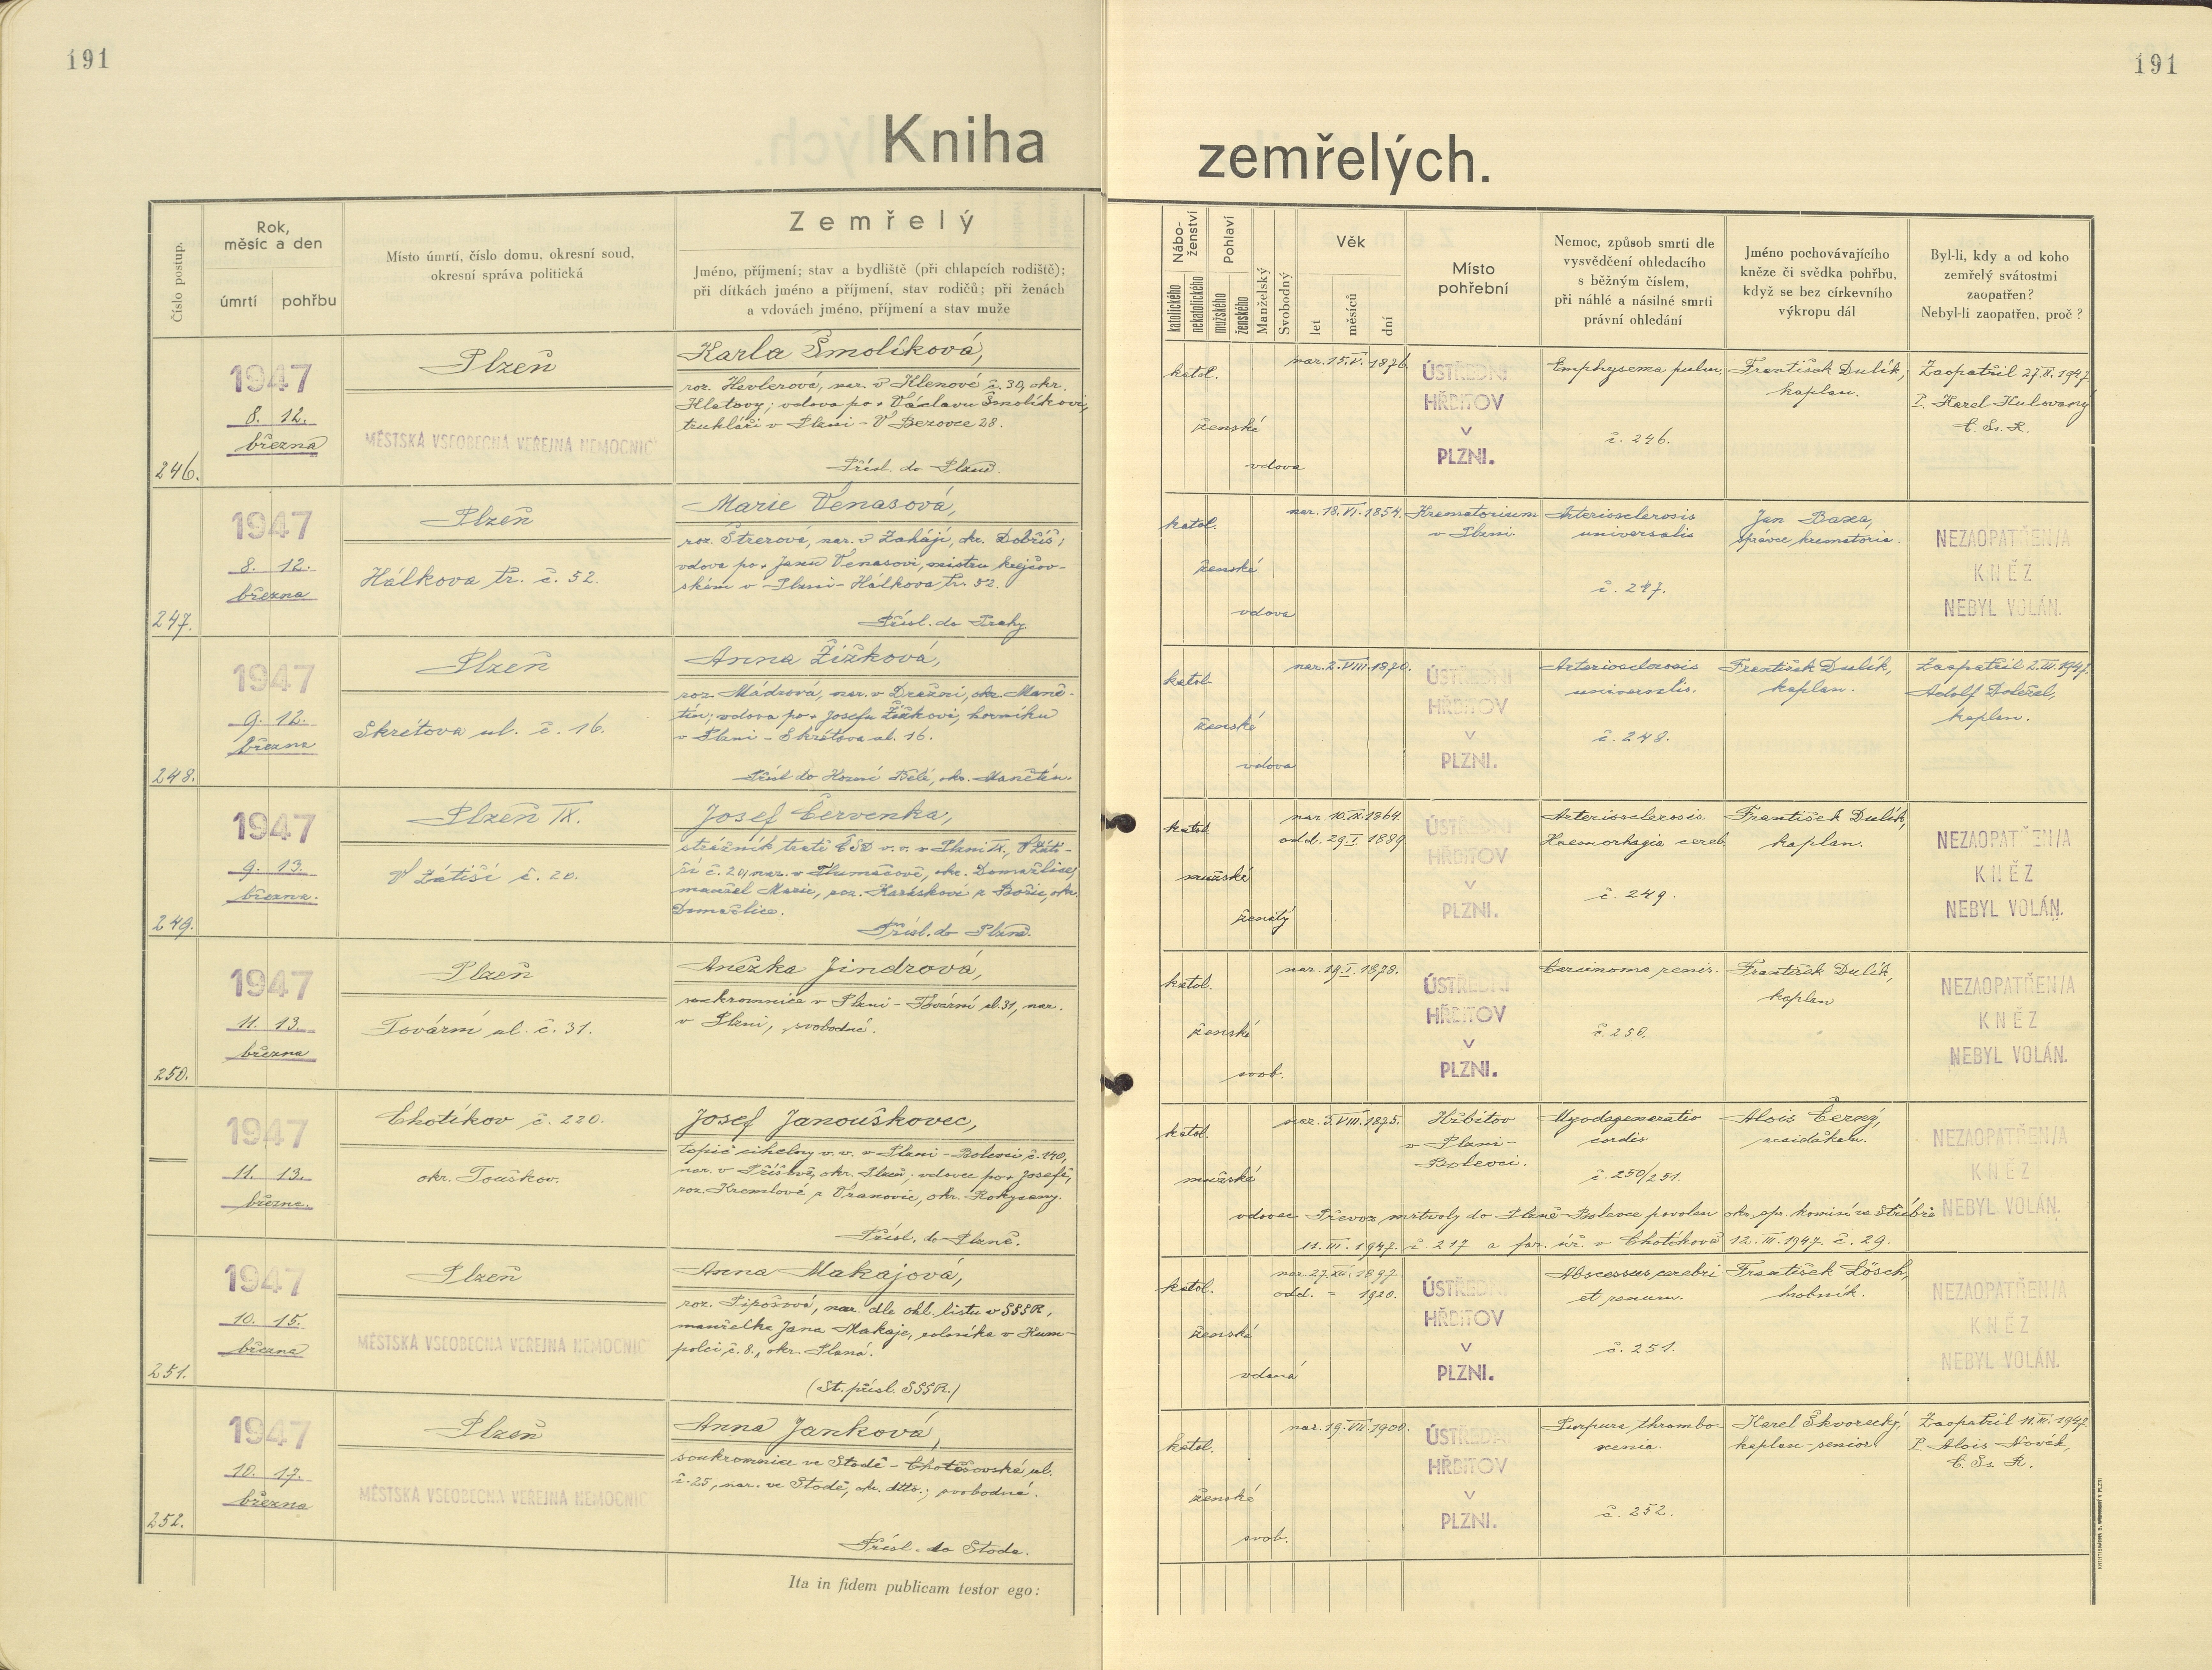 191
191
Kniha zemřelých.
Číslo postup.
Rok,
měsíc a den
úmrtí
pohřbu
Místo úmrtí, číslo domu, okresní soud,
okresní správa politická
Zemřelý
Jméno, příjmení; stav a bydliště (při chlapcích rodiště);
při dítkách jméno a příjmení, stav rodičů; při ženách
a vdovách jméno, příjmení a stav muže
Nábo-
ženství
katolického
nekatolického
Pohlaví
mužského
ženského
Manželský
Svobodný
Věk
let
měsíců
dní
Místo
pohřební
Nemoc, způsob smrti dle
vysvědčení ohledacího
s běžným číslem,
při náhlé a násilné smrti
právní ohledání
Jméno pochovávajícího
kněze či svědka pohřbu,
když se bez církevního
výkropu dál
Byl-li, kdy a od koho
zemřelý svátostmi
zaopatřen?
Nebyl-li zaopatřen, proč?
246.
1947
8. 12.
března
Plzeň
MĚSTSKÁ VŠEOBECNÁ VEŘEJNÁ NEMOCNIC
Karla Smolíková,
roz. Hevlerová, nar. v Klenové č. 30, okr.
Klatovy; vdova po + Václavu Smolíkovi,
truhláři v Plzni - V Bezovce 28.
Přísl. do Plzně.
katol.
ženské
vdova
nar. 15. V. 1876.
ÚSTŘEDNÍ
HŘBITOV
V
PLZNI.
Emphysema pulm.
č. 246.
František Dulík,
kaplan.
Zaopatřil 27. II. 1947.
P. Karel Kulovaný
C. Ss. R.
247.
1947
8. 12.
března
Plzeň
Hálkova tř. č. 52.
Marie Venasová,
roz. Štrerová, nar. v Zaháji, okr. Dobříš;
vdova po + Janu Venasovi, mistru krejčov-
ském v Plzni - Hálkova tř. 52.
Přísl. do Prahy.
katol.
ženské
vdova
nar. 18. VI. 1854.
Krematorium
v Plzni.
Arteriosclerosis
universalis
č. 247.
Jan Baxa,
správce krematoria.
NEZAOPATŘEN/A
KNĚZ
NEBYL VOLÁN.
248.
1947
9. 12.
března
Plzeň
Skrétova ul. č. 16.
Anna Žižková,
roz. Mádrová, nar. v Dražni, okr. Maně-
tín; vdova po + Josefu Žižkovi, horníku
v Plzni - Skrétova ul. 16.
Přísl. do Horní Bělé, okr. Manětín.
katol.
ženské
vdova
nar. 2. VIII. 1870.
ÚSTŘEDNÍ
HŘBITOV
V
PLZNI.
Arteriosclerosis
universalis.
č. 248.
František Dulík,
kaplan.
Zaopatřil 2. III. 1947.
Adolf Doležal,
kaplan.
249.
1947
9. 13.
března.
Plzeň IX.
V Zátiší č. 20.
Josef Červenka,
strážník trati ČSD v. v. v Plzni IX, V Záti-
ší č. 20, nar. v Tlumačově, okr. Domažlice,
manžel Marie, roz. Karáskové z Bořic, okr.
Domažlice.
Přísl. do Plzně.
katol.
mužské
ženatý
nar. 10. IX. 1864
odd. 29. I. 1889.
ÚSTŘEDNÍ
HŘBITOV
V
PLZNI.
Arteriosclerosis.
Haemorhagia cereb.
č. 249.
František Dulík,
kaplan.
NEZAOPATŘEN/A
KNĚZ
NEBYL VOLÁN.
250.
1947
11. 13.
března
Plzeň
Tovární ul. č. 31.
Anežka Jindrová,
soukromnice v Plzni - Tovární ul. 31, nar.
v Plzni, svobodná.
katol.
ženské
svob.
nar. 19. I. 1878.
ÚSTŘEDNÍ
HŘBITOV
V
PLZNI.
Carcinoma renis.
č. 250.
František Dulík,
kaplan
NEZAOPATŘEN/A
KNĚZ
NEBYL VOLÁN.
1947
11. 13.
března.
Chotíkov č. 220.
okr. Touškov.
Josef Janouškovec,
topič cihelny v. v. v Plzni - Bolevci č. 140,
nar. v Příšově, okr. Plzeň; vdovec po + Josefě,
roz. Kremlové z Vranovic, okr. Rokycany.
Přísl. do Plzně.
katol.
mužské
vdovec
nar. 3. VIII. 1875.
Hřbitov
v Plzni-
Bolevci.
Myodegeneratio
cordis
č. 250/251.
Alois Černý,
arciděkan.
NEZAOPATŘEN/A
KNĚZ
NEBYL VOLÁN.
Převoz mrtvoly do Plzně-Bolevce povolen okr. spr. komisí ve Stříbře
11. III. 1947. č. 217 a far. úř. v Chotíkově 12. III. 1947. č. 29.
251.
1947
10. 15.
března
Plzeň
MĚSTSKÁ VŠEOBECNÁ VEŘEJNÁ NEMOCNIC
Anna Makajová,
roz. Pipošová, nar. dle ohl. listu v SSSR,
manželka Jana Makaje, rolníka v Kum-
polci č. 8., okr. Planá.
(St. přísl. SSSR.)
katol.
ženské
vdaná
nar. 27. XII. 1897.
odd. - 1920.
ÚSTŘEDNÍ
HŘBITOV
V
PLZNI.
Abscessus cerebri
et renum.
č. 251.
František Lösch,
hrobník.
NEZAOPATŘEN/A
KNĚZ
NEBYL VOLÁN.
252.
1947
10. 17.
března
Plzeň
MĚSTSKÁ VŠEOBECNÁ VEŘEJNÁ NEMOCNIC
Anna Janková,
soukromnice ve Stodě - Chotěšovská ul.
č. 25, nar. ve Stodě, okr. dtto.; svobodná.
Přísl. do Stoda.
katol.
ženské
svob.
nar. 19. VII. 1900.
ÚSTŘEDNÍ
HŘBITOV
V
PLZNI.
Purpura thrombo-
xenia.
č. 252.
Karel Škvorecký,
kaplan-senior.
Zaopatřil 11. III. 1947.
P. Alois Novák,
C. Ss. R.
Ita in fidem publicam testor ego: